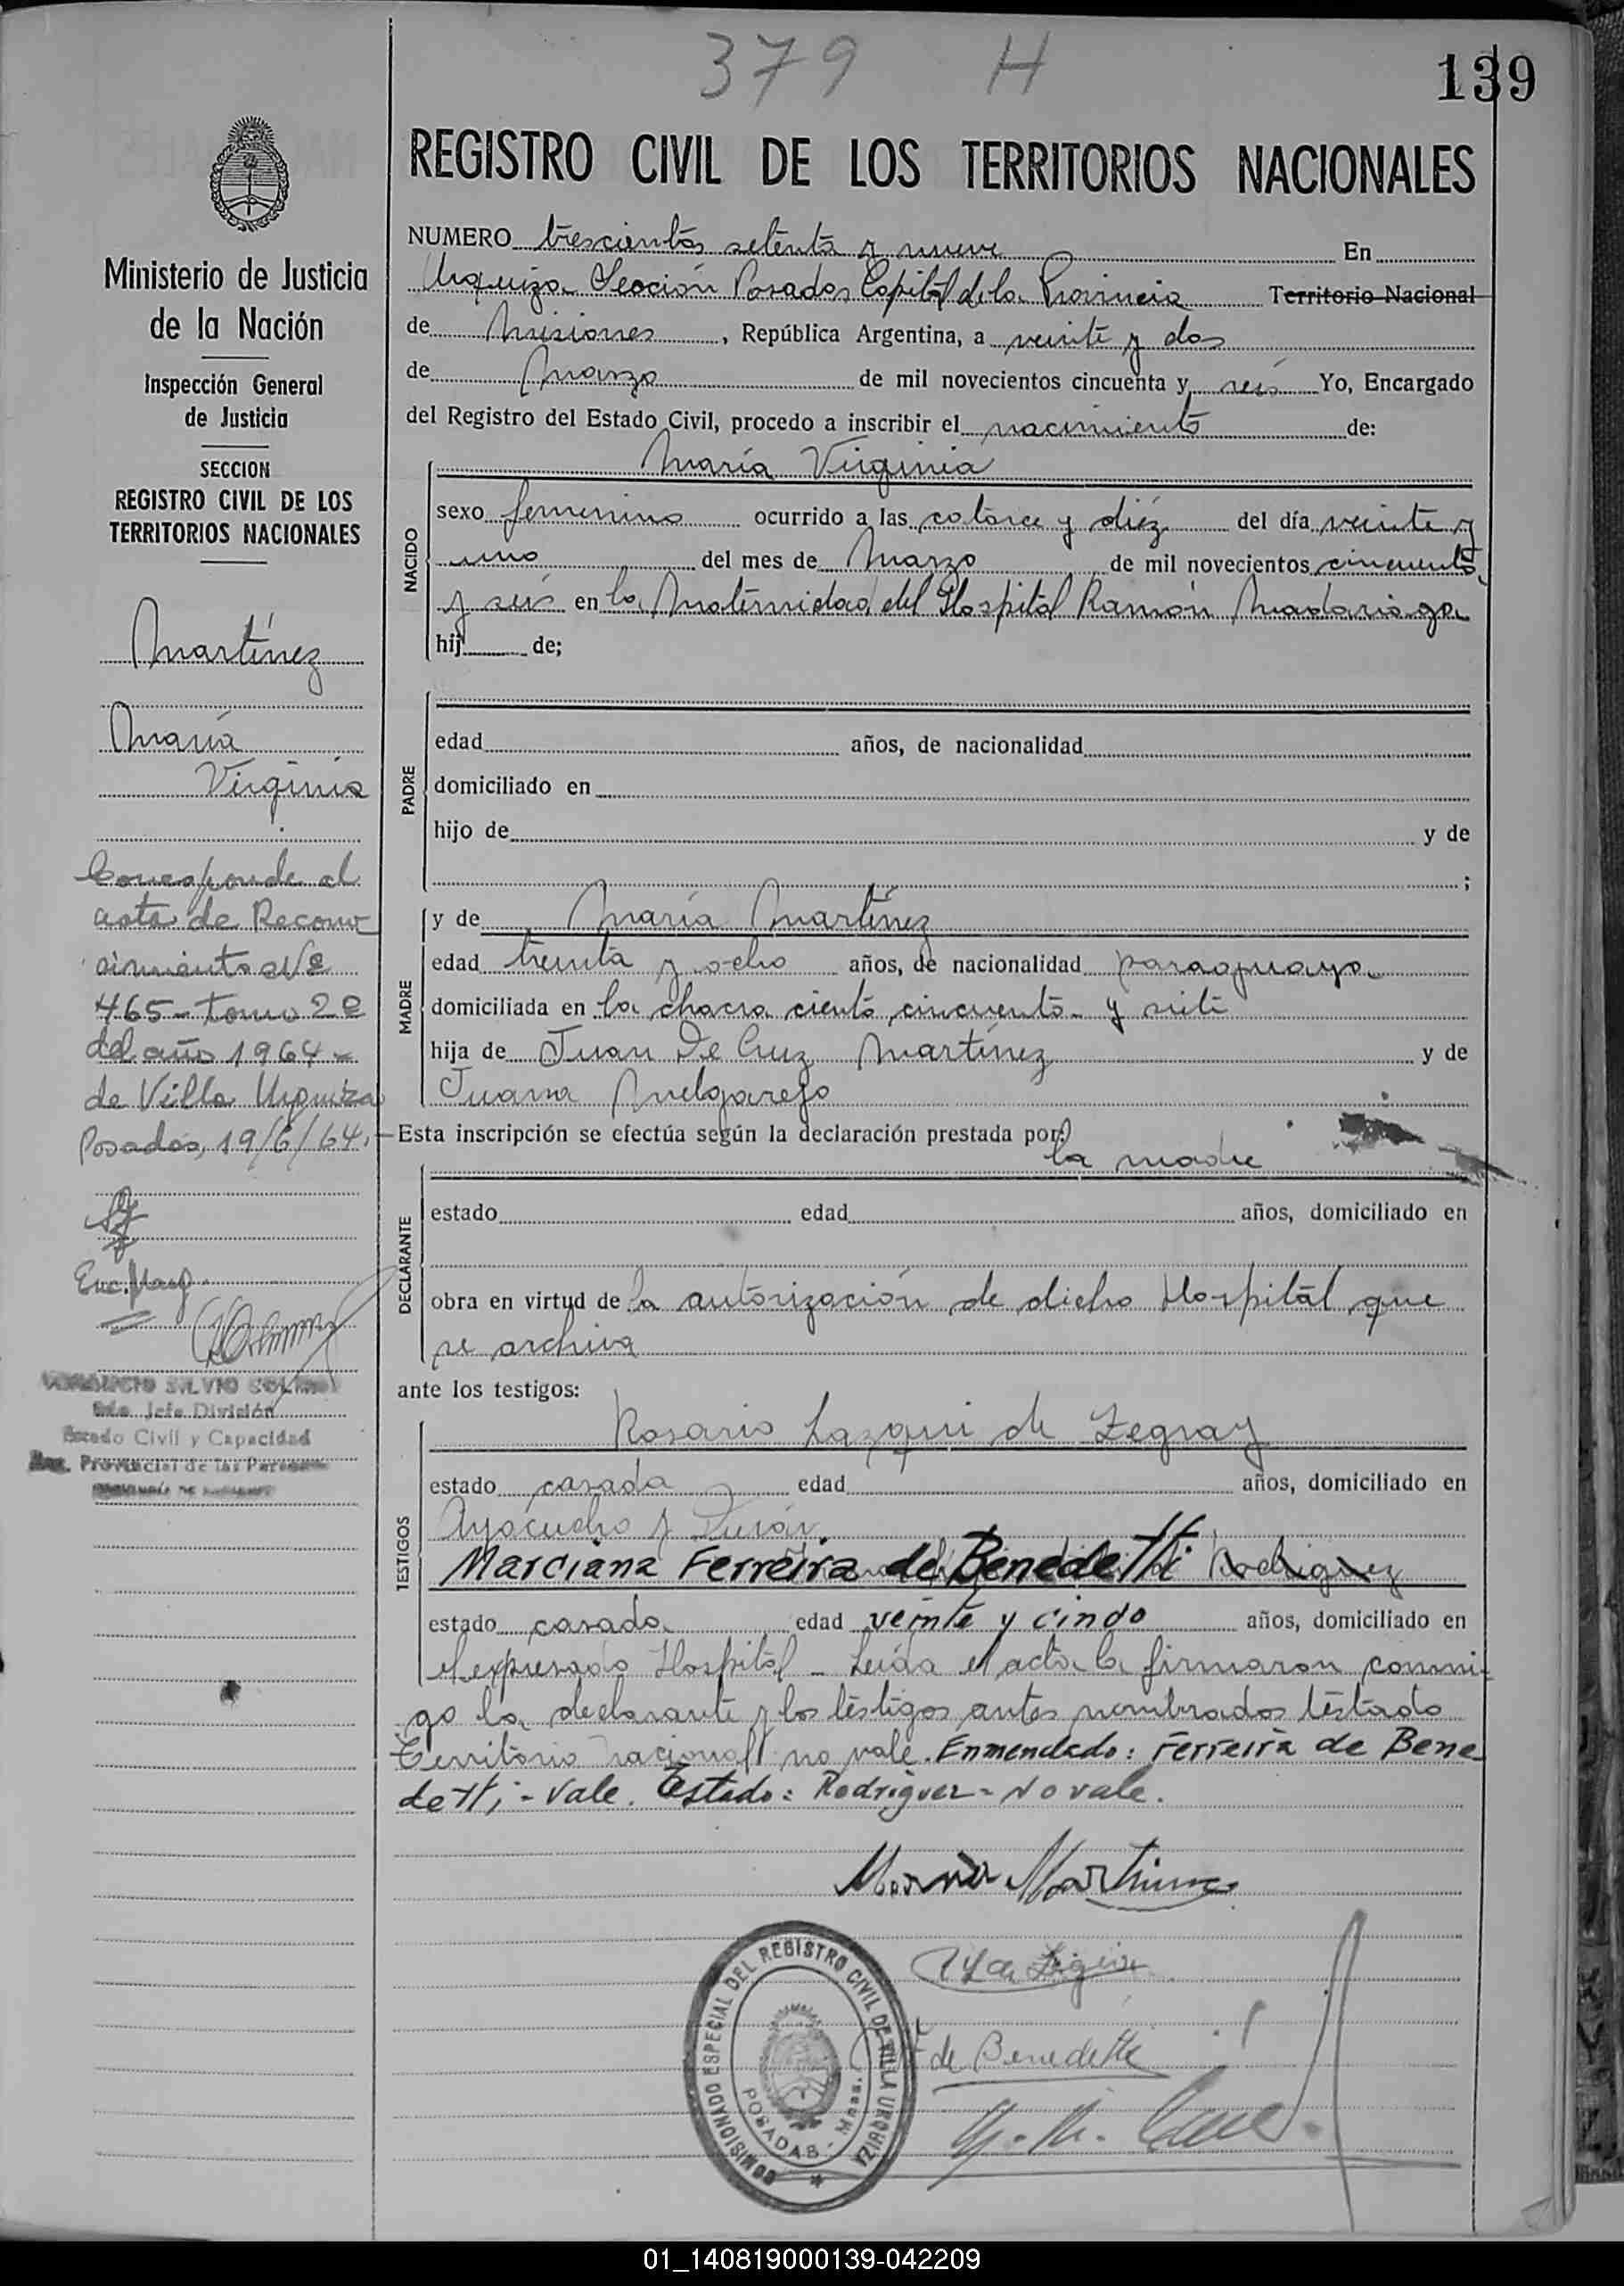 379 H
139
REGISTRO CIVIL DE LOS TERRITORIOS NACIONALES
Ministerio de Justicia
de la Nación
Inspección General
de Justicia
SECCION
REGISTRO CIVIL DE LOS
TERRITORIOS NACIONALES
Martínez
María
Virginia
Corresponde al
acta de Recono
cimiento Nº
465 - tomo 2º
del año 1964 -
de Villa Urquiza
Posadas, 19/6/64.
Enc.
SILVIO
Jefe División
Estado Civil y Capacidad
Provincial de las Personas
NUMERO trescientos setenta y nueve En
Urquiza Sección Posadas Capital de la Provincia Territorio Nacional
de Misiones, República Argentina, a veinte y dos
de Marzo de mil novecientos cincuenta y seis Yo, Encargado
del Registro del Estado Civil, procedo a inscribir el nacimiento de:
NACIDO
María Virginia
sexo femenino ocurrido a las catorce y diéz del día veinte y
uno del mes de Marzo de mil novecientos cincuenta
y seis en la Maternidad del Hospital Ramón Madariaga
hij de;
PADRE
edad años, de nacionalidad
domiciliado en
hijo de y de
;
MADRE
y de María Martínez
edad treinta y ocho años, de nacionalidad paraguaya
domiciliada en la chacra ciento cincuenta y siete
hija de Juan De Cruz Martínez y de
Juana Melgarejo
Esta inscripción se efectúa según la declaración prestada por:
la madre
DECLARANTE
estado edad años, domiciliado en
obra en virtud de la autorización de dicho Hospital que
se archiva
ante los testigos:
TESTIGOS
Rosario de
estado casada edad años, domiciliado en
Ayacucho y
Marciana Ferreira de Benedetti Rodriguez
estado casada edad veinte y cinco años, domiciliado en
el expresado Hospital - Leída el acta la firmaron conmi-
go la declarante y los testigos antes nombrados testado
Territorio nacional no vale. Enmendado: Ferreira de Bene
detti - Vale. Testado: Rodriguez - No vale.
María Martinez
de Benedetti
COMISIONADO ESPECIAL DEL REGISTRO CIVIL DE VILLA URQUIZA
POSADAS - Mnes.
01_140819000139-042209